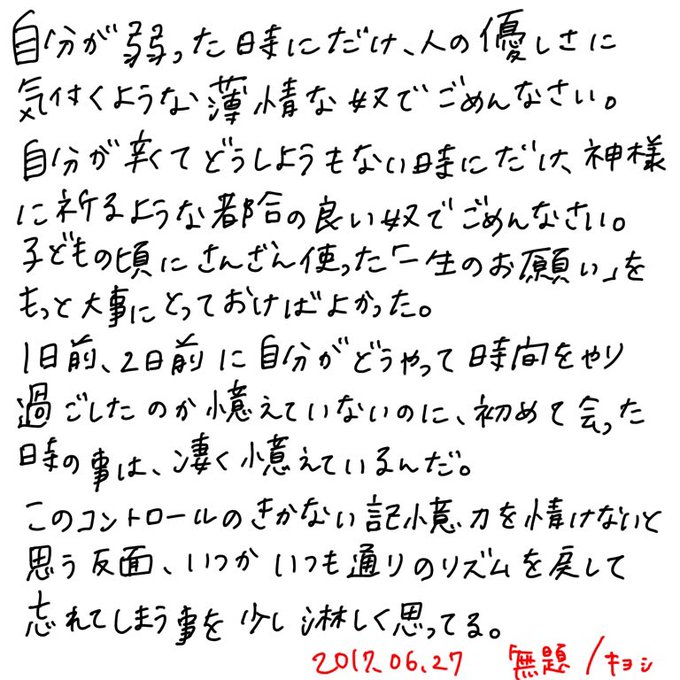 自分が弱った時にだけ、人の優しさに
気付くような薄情な奴でごめんなさい。
自分が辛くてどうしようもない時にだけ、神様
に祈るような都合の良い奴でごめんなさい。
子どもの頃にさんざん使った「一生のお願い」を
もっと大事にとっておけばよかった。
1日前、2日前に自分がどうやって時間をやり
過ごしたのか憶えていないのに、初めて会った
時の事は、凄く憶えているんだ。
このコントロールのきかない記憶力を情けないと
思う反面、いつかいつも通りのリズムを戻して
忘れてしまう事を少し淋しく思ってる。
2017.06.27 無題/キヨシ